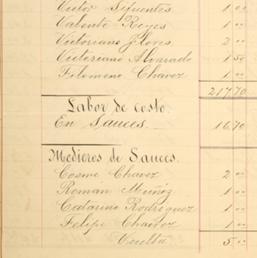 Victor Sifuentes 1 00
Valente Reyes 1 00
Victoriano Flores 2 00
Victoriano Alvarado 1 50
Filomeno Chavez 1 00
217.70
Labor de costo.
En Sauces. 16.70
Medieros de Sauces.
Cosme Chavez 2 00
Roman Muñoz 1 00
Catarino Rodriguez 1 00
Felipe Chavez 1 00
Vuelta 5 00